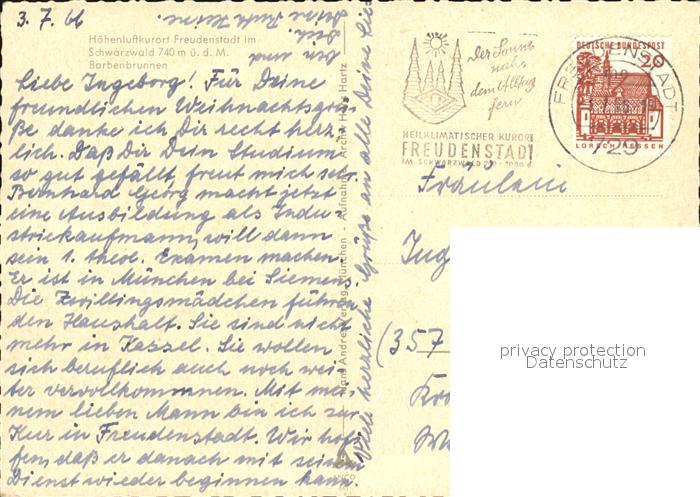 3. 7. 66
Höhenluftkurort Freudenstadt im
Schwarzwald 740 m ü. d. M.
Barbenbrunnen
Liebe Ingeborg! Für Deine
freundlichen Weihnachtsgrü-
ße danke ich Dir recht herz-
lich. Daß Dir Dein Studium
so gut gefällt, freut mich sehr.
Bernhard Georg macht jetzt
eine Ausbildung als Indu-
striekaufmann, will dann
sein 1. theol. Examen machen.
Er ist in München bei Siemens.
Die Zwillingsmädchen führen
den Haushalt. Sie sind nicht
mehr in Kassel. Sie wollen
sich beruflich auch noch wei-
ter vervollkommnen. Mit mei-
nem lieben Mann bin ich zur
Kur in Freudenstadt. Wir hof-
fen, daß er danach mit seinem
Dienst wieder beginnen kann.
Viele herzliche Grüße an alle Deine Lie
ben und
Dich
Deine
Hans Andres Verlag, München - Aufnahme: Archiv Hans Hartz
Der Sonne
nah,
dem Alltag
fern
HEILKLIMATISCHER KURORT
FREUDENSTADT
IM SCHWARZWALD
DEUTSCHE BUNDESPOST
20
LORSCH/HESSEN
FREUDENSTADT
729
Fräulein
Ing
(357
privacy protection
Datenschutz